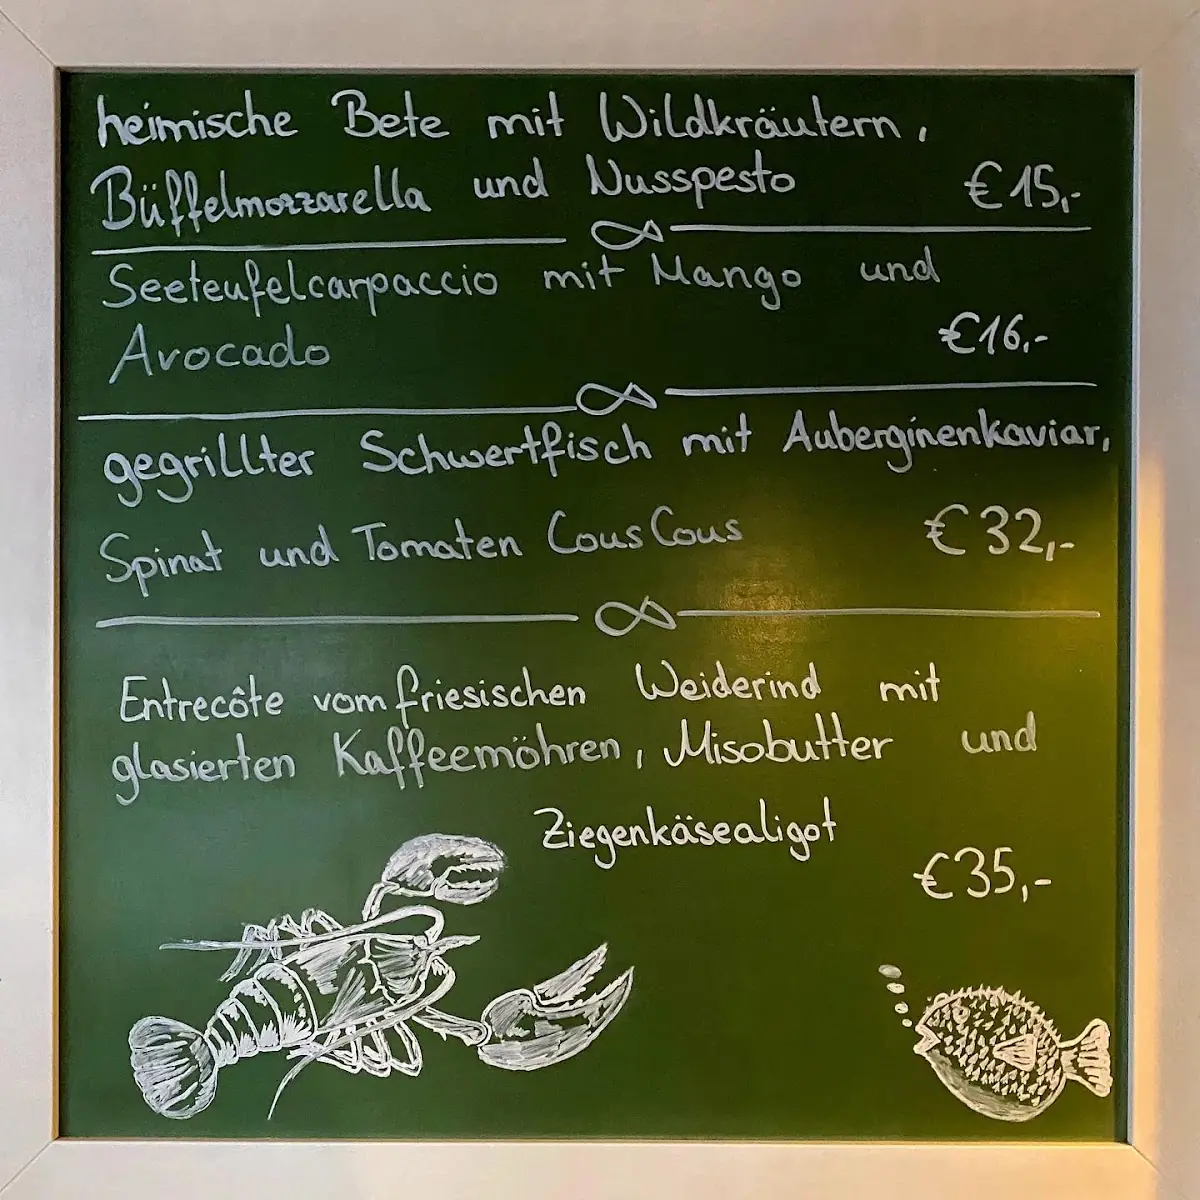 heimische Bete mit Wildkräutern,
Büffelmozzarella und Nusspesto €15,-
Seeteufelcarpaccio mit Mango und
Avocado €16,-
gegrillter Schwertfisch mit Auberginenkaviar,
Spinat und Tomaten CousCous €32,-
Entrecôte vom friesischen Weiderind mit
glasierten Kaffeemöhren, Misobutter und
Ziegenkäsealigot
€35,-